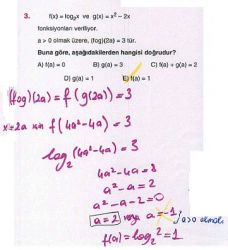 3. f(x) = log₂x ve g(x) = x² – 2x
fonksiyonları veriliyor.
a > 0 olmak üzere, (fog)(2a) = 3 tür.
Buna göre, aşağıdakilerden hangisi doğrudur?
A) f(a) = 0 B) g(a) = 3 C) f(a) + g(a) = 2
D) g(a) = 1 E) f(a) = 1
(fog)(2a) = f(g(2a)) = 3
x=2a için f(4a²-4a) = 3
log₂(4a²-4a) = 3
4a²-4a = 8
a²-a = 2
a²-a-2=0
a=2 veya a=-1 } a>0 olmalı
f(a) = log₂2 = 1